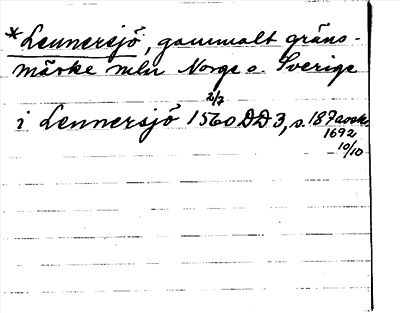 *Lennersjö, gammalt gräns-
märke mln Norge o. Sverige
2/7
i Lennersjö 1560 DD 3, s. 187 avskr.
1692
10/10